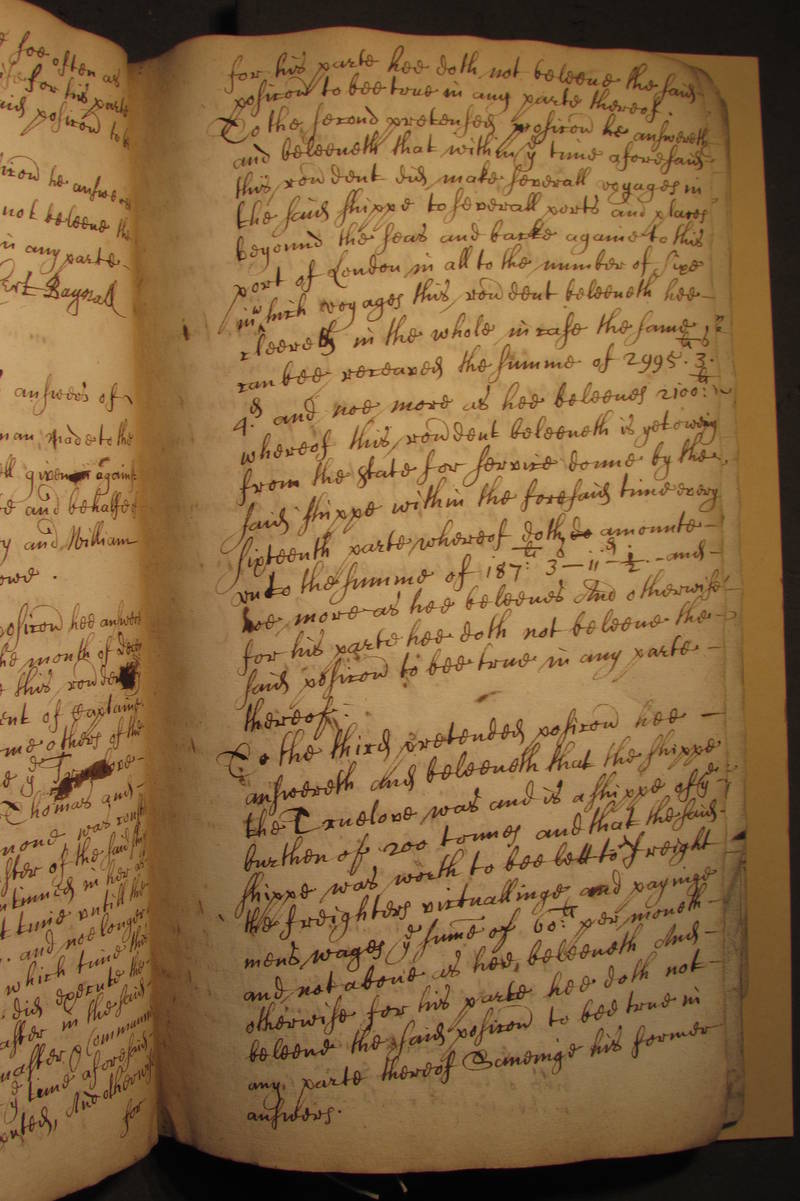 e soe often as
ise for his parte
aid posicon to b
icon he answer
not beleeve the
in any parte
Bagnall
answers of
man made to the
ell given against
e and behalfe of
y and William
owe .
posicon hee answer
he month of
e this rondent
ent of Captaine
me others of the
e ye Truelove
Thomas and
none was
ster of the said ship
ntinued in her as
t time untill the
. and noe longer
which time this
did execute the
aster in the said
master
ye time aforesaid
puted, And otherwise
for
for his parte hee doth not beleeve the said
posicon to bee true in any parte thereof.
To the second pretensed posicon he answereth
and beleeveth that within ye time aforesaid
this rondent did make severall voyages in
the said shippe to severall ports and places
beyound the seas and backe againe to this
port of London in all to the number of sixe
in which voyages this rondent beleeveth hee
cleereth in the whole in case the same
can bee receaved the summe of 2995 li 3 s
4 d and noe more as hee beleeves 2100 li
whereof this rondent beleeveth is yet oweing
from the state for service donne by the
said shippe within the foresaid time every
sixteenth parte whereof doth de amounte
unto the summe of 187 li 3 s - ii d ½ - and
noe more as hee beleeves And otherwise
for his parte hee doth not beleeve the
said posicon to bee true in any parte
thereof.
To the third pretended posicon hee
answereth and beleeveth that the shippe
the Truelove was and is a shippe of ye
burthen of 200 tonnes and that the said
shippe was worth to bee lett to freight
the freighters victuallinge and payinge
mens wages ye sume of 60 li per moneth
and not above as hee beleeveth And
otherwise for his parte hee doth not
beleeve the said posicon to bee true in
any parte thereof Saveinge his former
answers.